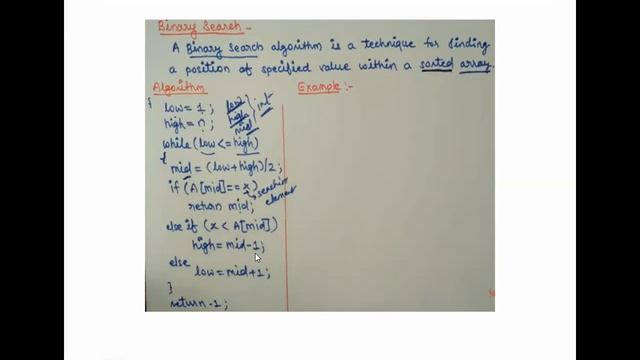 Binary Search -
A Binary Search algorithm is a technique for finding
a position of specified value within a sorted array.
Algorithm
Example :-
{
low = 1;
high = n;
low
high
mid
int
while (low <= high)
{
mid = (low + high)/2;
if (A[mid] == x)
searching
element
return mid;
else if (x < A[mid])
high = mid-1;
else
low = mid+1;
}
return -1;